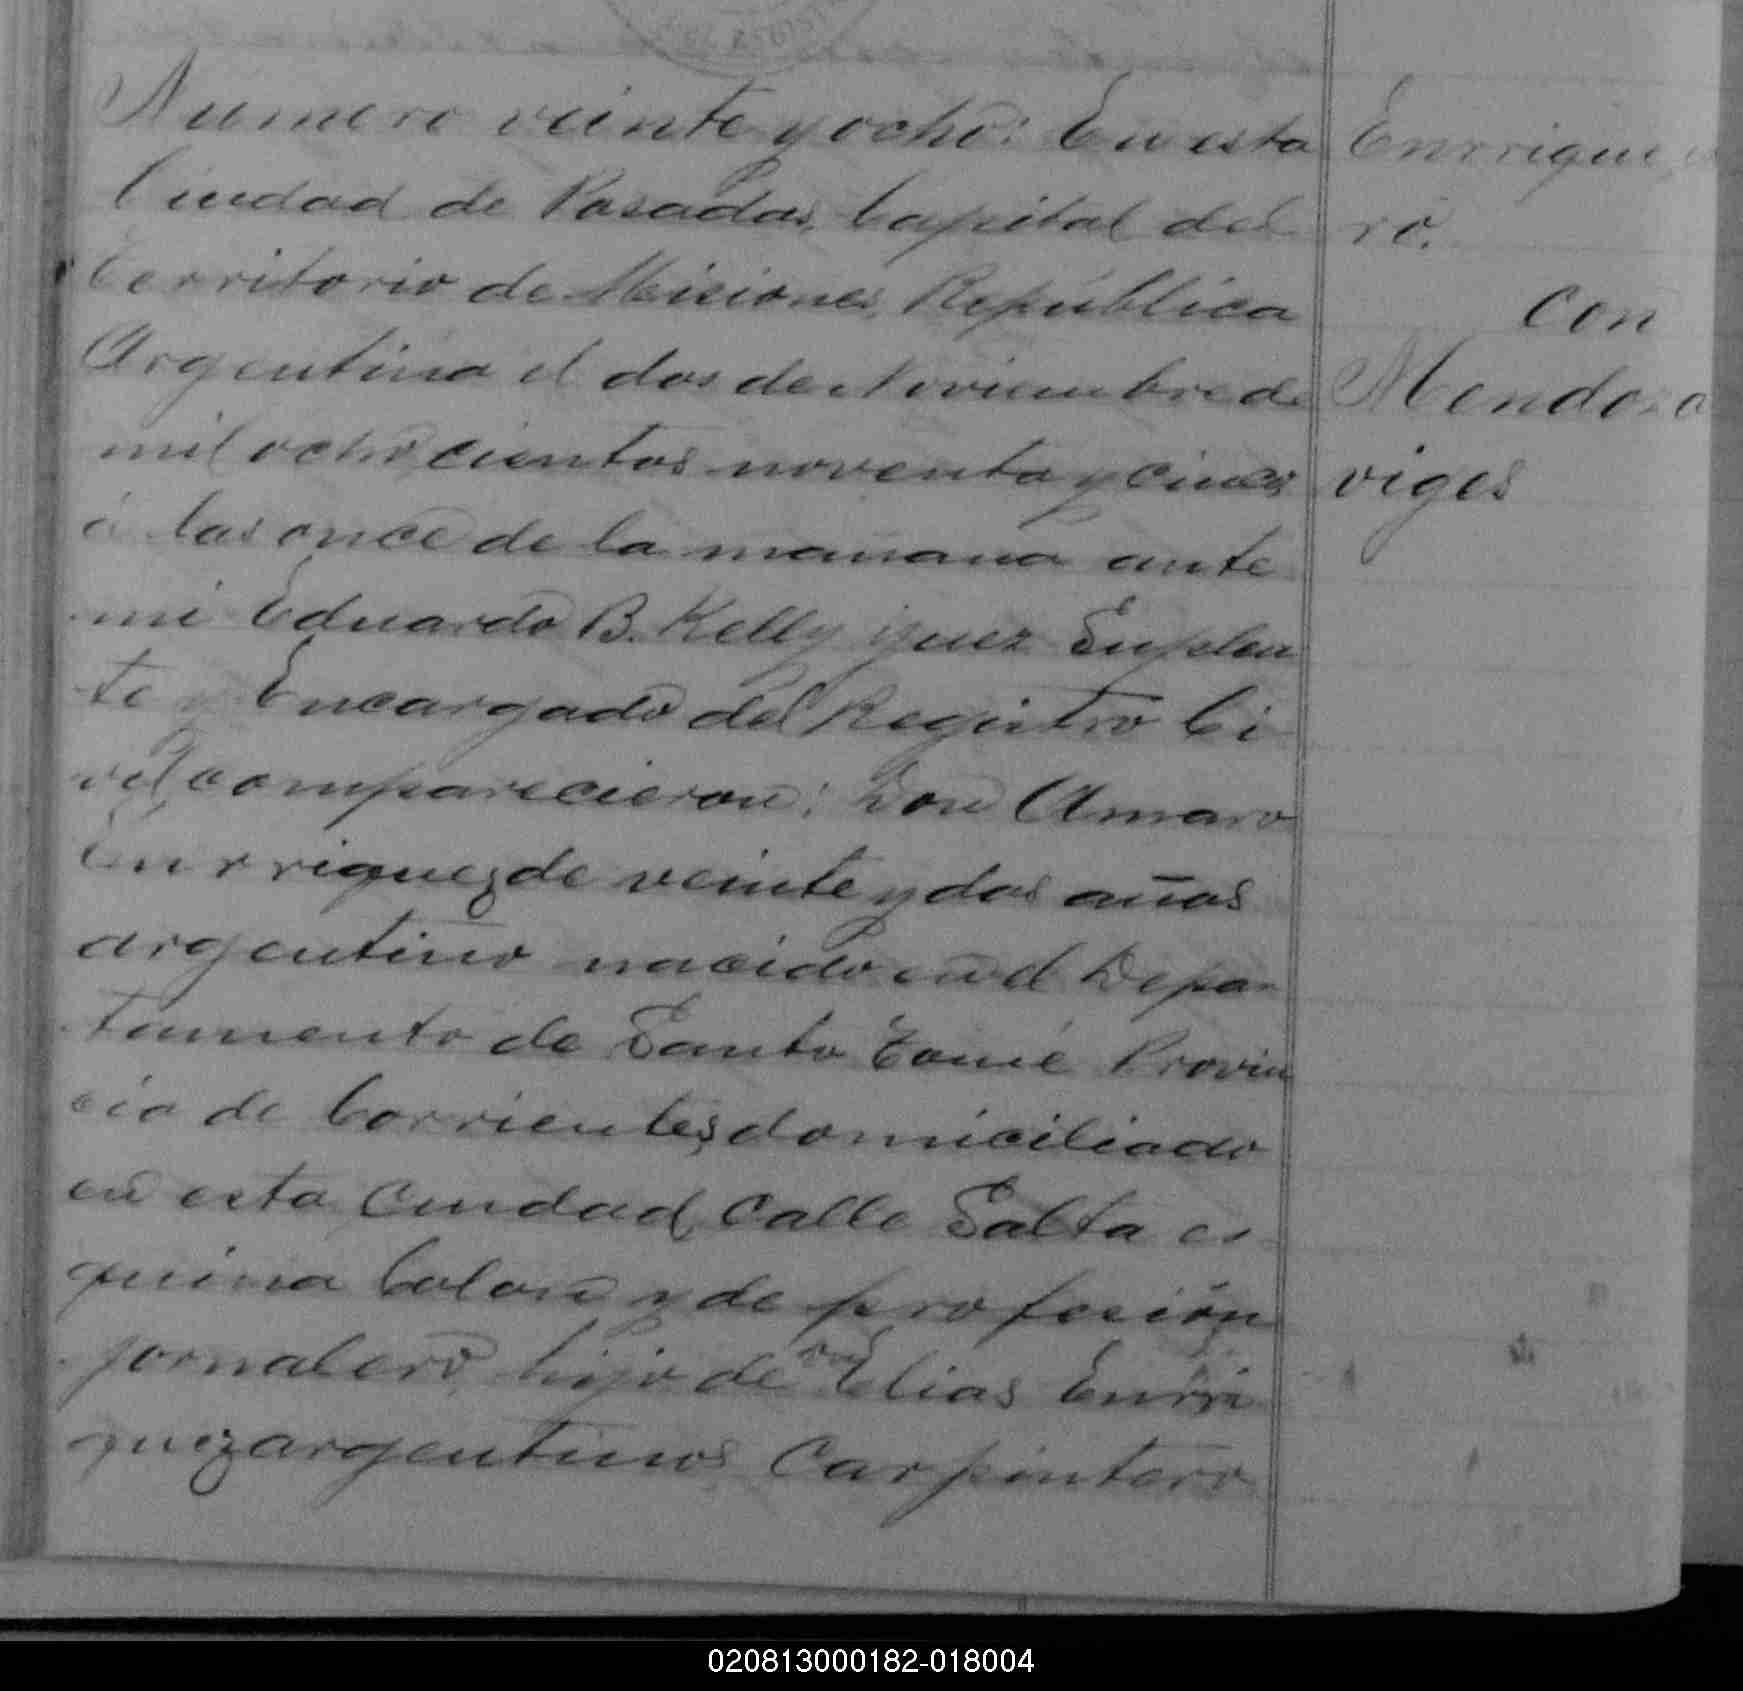 Numero veinte y ocho: En esta
Ciudad de Posadas, Capital del
Territorio de Misiones, República
Argentina el dos de Noviembre de
mil ochocientos noventa y cinco
á las once de la manana ante
mi Eduardo B. Kelly Juez Suplen
te y Encargado del Registro Ci
vil comparecieron: Don Amaro
Enrriquez de veinte y dos años
argentino nacido en el Depar
tamento de Santo Tomé Provin
cia de Corrientes, domiciliado
en esta Ciudad, Calle Salta es
quina Colon y de profesión
jornalero, hijo de Elias Enrri
quez argentinos Carpintero
Enrrique
ro.
con
Mendoza
viges
020813000182-018004